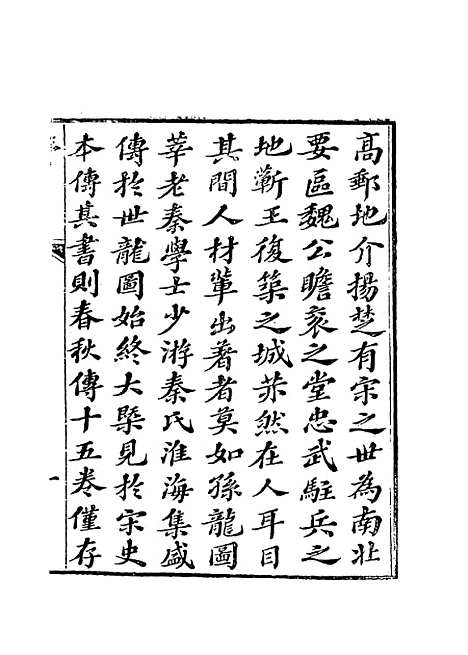 高郵地介揚楚有宋之世為南北
要區魏公瞻袞之堂忠武駐兵之
地蘄王復築之城炳然在人耳目
其間人材輩出著者莫如孫龍圖
莘老秦學士少游秦氏淮海集盛
傳於世龍圖始終大槩見於宋史
本傳其書則春秋傳十五卷僅存
一